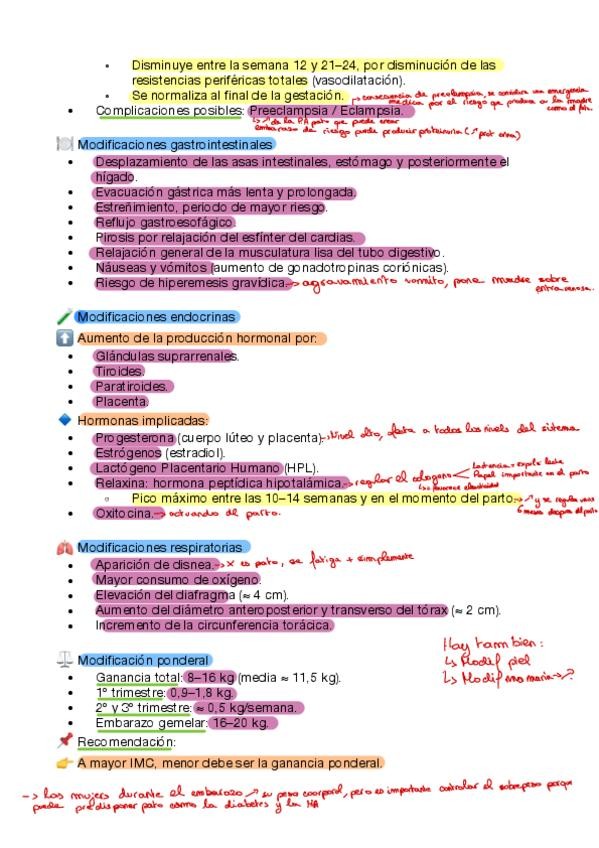 Disminuye entre la semana 12 y 21–24, por disminución de las
resistencias periféricas totales (vasodilatación).
Se normaliza al final de la gestación.
→ consecuencia de preeclampsia, se considera una emergencia
médica por el riesgo que produce a la madre
como al feto.
Complicaciones posibles: Preeclampsia / Eclampsia.
embarazo de riesgo puede producir proteinuria (↗ prot orina)
🍽 Modificaciones gastrointestinales
Desplazamiento de las asas intestinales, estómago y posteriormente el
hígado.
Evacuación gástrica más lenta y prolongada.
Estreñimiento, periodo de mayor riesgo.
Reflujo gastroesofágico.
Pirosis por relajación del esfínter del cardias.
Relajación general de la musculatura lisa del tubo digestivo.
Náuseas y vómitos (aumento de gonadotropinas coriónicas).
Riesgo de hiperemesis gravídica. → agravamiento vomito, pone madre sobre
Modificaciones endocrinas
⬆ Aumento de la producción hormonal por:
Glándulas suprarrenales.
Tiroides.
Paratiroides.
Placenta.
🔹 Hormonas implicadas:
Progesterona (cuerpo lúteo y placenta). → Nivel alto, afecta a todos los niveles del sistema
Estrógenos (estradiol).
Lactógeno Placentario Humano (HPL).
Relaxina: hormona peptídica hipotalámica. → regular el colageno
Papel importante en el parto
Pico máximo entre las 10–14 semanas y en el momento del parto.
Oxitocina. → actuando del parto.
🫁 Modificaciones respiratorias
Aparición de disnea. → x es pato, se fatiga + simplemente
Mayor consumo de oxígeno.
Elevación del diafragma (≈ 4 cm).
Aumento del diámetro anteroposterior y transverso del tórax (≈ 2 cm).
Incremento de la circunferencia torácica.
Hay tambien:
↳ Modif piel
↳ Modif mamaria → ?
⚖ Modificación ponderal
Ganancia total: 8–16 kg (media ≈ 11,5 kg).
1º trimestre: 0,9–1,8 kg.
2º y 3º trimestre: ≈ 0,5 kg/semana.
Embarazo gemelar: 16–20 kg.
📌 Recomendación:
👉 A mayor IMC, menor debe ser la ganancia ponderal.
→ las mujers durante el embarazo ↗ su peso corporal, pero es importante controlar el sobrepeso porque
puede predisponer pato como la diabetes y la HA